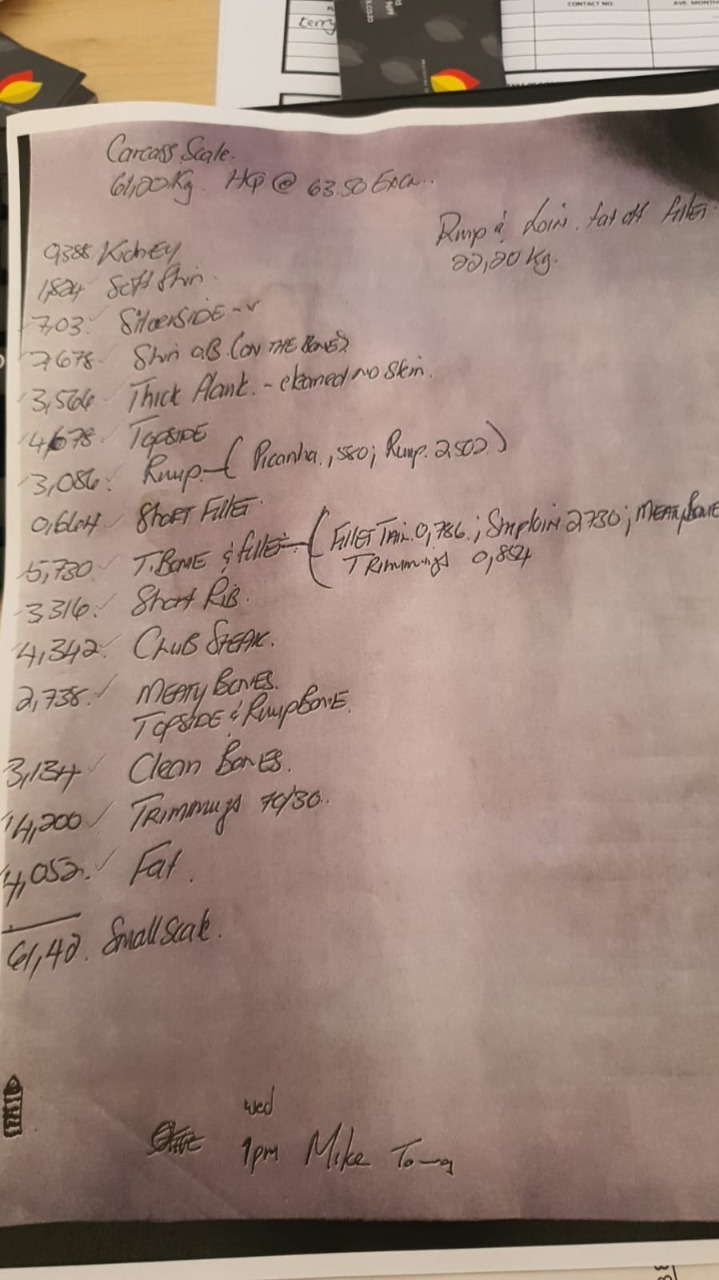 CONTACT NO.
AVE. MONTH
terry
Carcass Scale.
61,00Kg. HQ @ 63.50 Excl..
Rump & Loin. fat off fillet.
22,20 Kg.
Kidney
1,824 Soft Shin.
7,03. SilverSIDE -
2,678 Shin O.B. (ON THE BONE)
3,566 Thick Flank. - cleaned no skin.
4,678 TOPSIDE
3,086. Rump - ( Picanha. ,580; Rump. 2.502. )
0,604 SHORT Fillet.
5,730. T.BONE & fillet - ( FILLET TAIL 0,786.; Simploin 2,730; MEATY BONE
TRimmings 0,854
3,316. Short Rib.
4,342 CLUB STEAK.
2,738. MEATY BONES.
TOPSIDE & Rump BONE.
3,134 Clean BONES.
14,200 TRimmings 70/30.
4,052. Fat.
61,40. Small Scale.
wed
1pm Mike